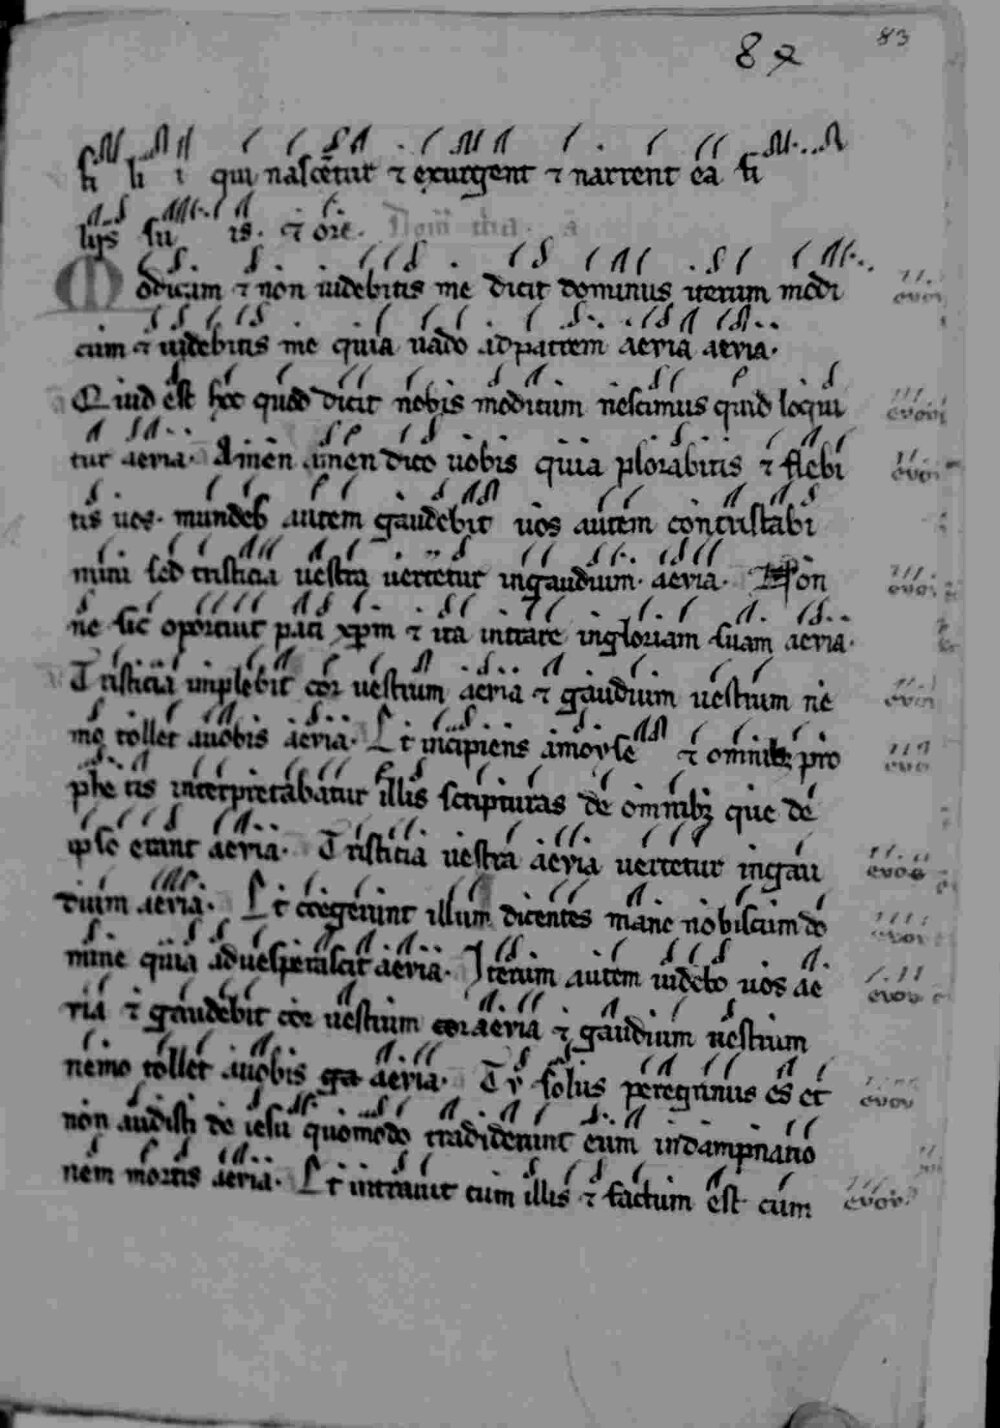 84 83
fi li i qui nascētur ⁊ exurgent ⁊ narrent ea fi
lijs su is. ⁊ ore.
Modicum ⁊ non uidebitis me dicit dominus iterum modi
cum ⁊ uidebitis me quia uado ad patrem aeuia aeuia.
Quid est hoc quod dicit nobis modicum nescimus quid loqui evov
tur aeuia. Amen amen dico uobis quia plorabitis ⁊ flebi
tis uos. mundus autem gaudebit uos autem contristabi
mini sed tristicia uestra uertetur ingaudium. aeuia. Non
ne sic oportuit pati xpm ⁊ ita intrare ingloriam suam aeuia.
Tristicia implebit cor uestrum aeuia ⁊ gaudium uestrum ne
mo tollet auobis aeuia. Et incipiens amoyse ⁊ omnibꝫ pro
phe tis interpretabatur illis scripturas de omnibꝫ que de
ipso erant aeuia. Tristicia uestra aeuia uertetur ingau evov
dium aeuia. Et coegerunt illum dicentes mane nobiscum do
mine quia aduesperascit aeuia. Iterum autem uidebo uos ae evov
uia ⁊ gaudebit cor uestrum cor aeuia ⁊ gaudium uestrum
nemo tollet auobis ga aeuia. Tv solus peregrinus es et evov
non audisti de iesu quomodo tradiderunt eum indampnatio
nem mortis aeuia. Et intrauit cum illis ⁊ factum est cum evov